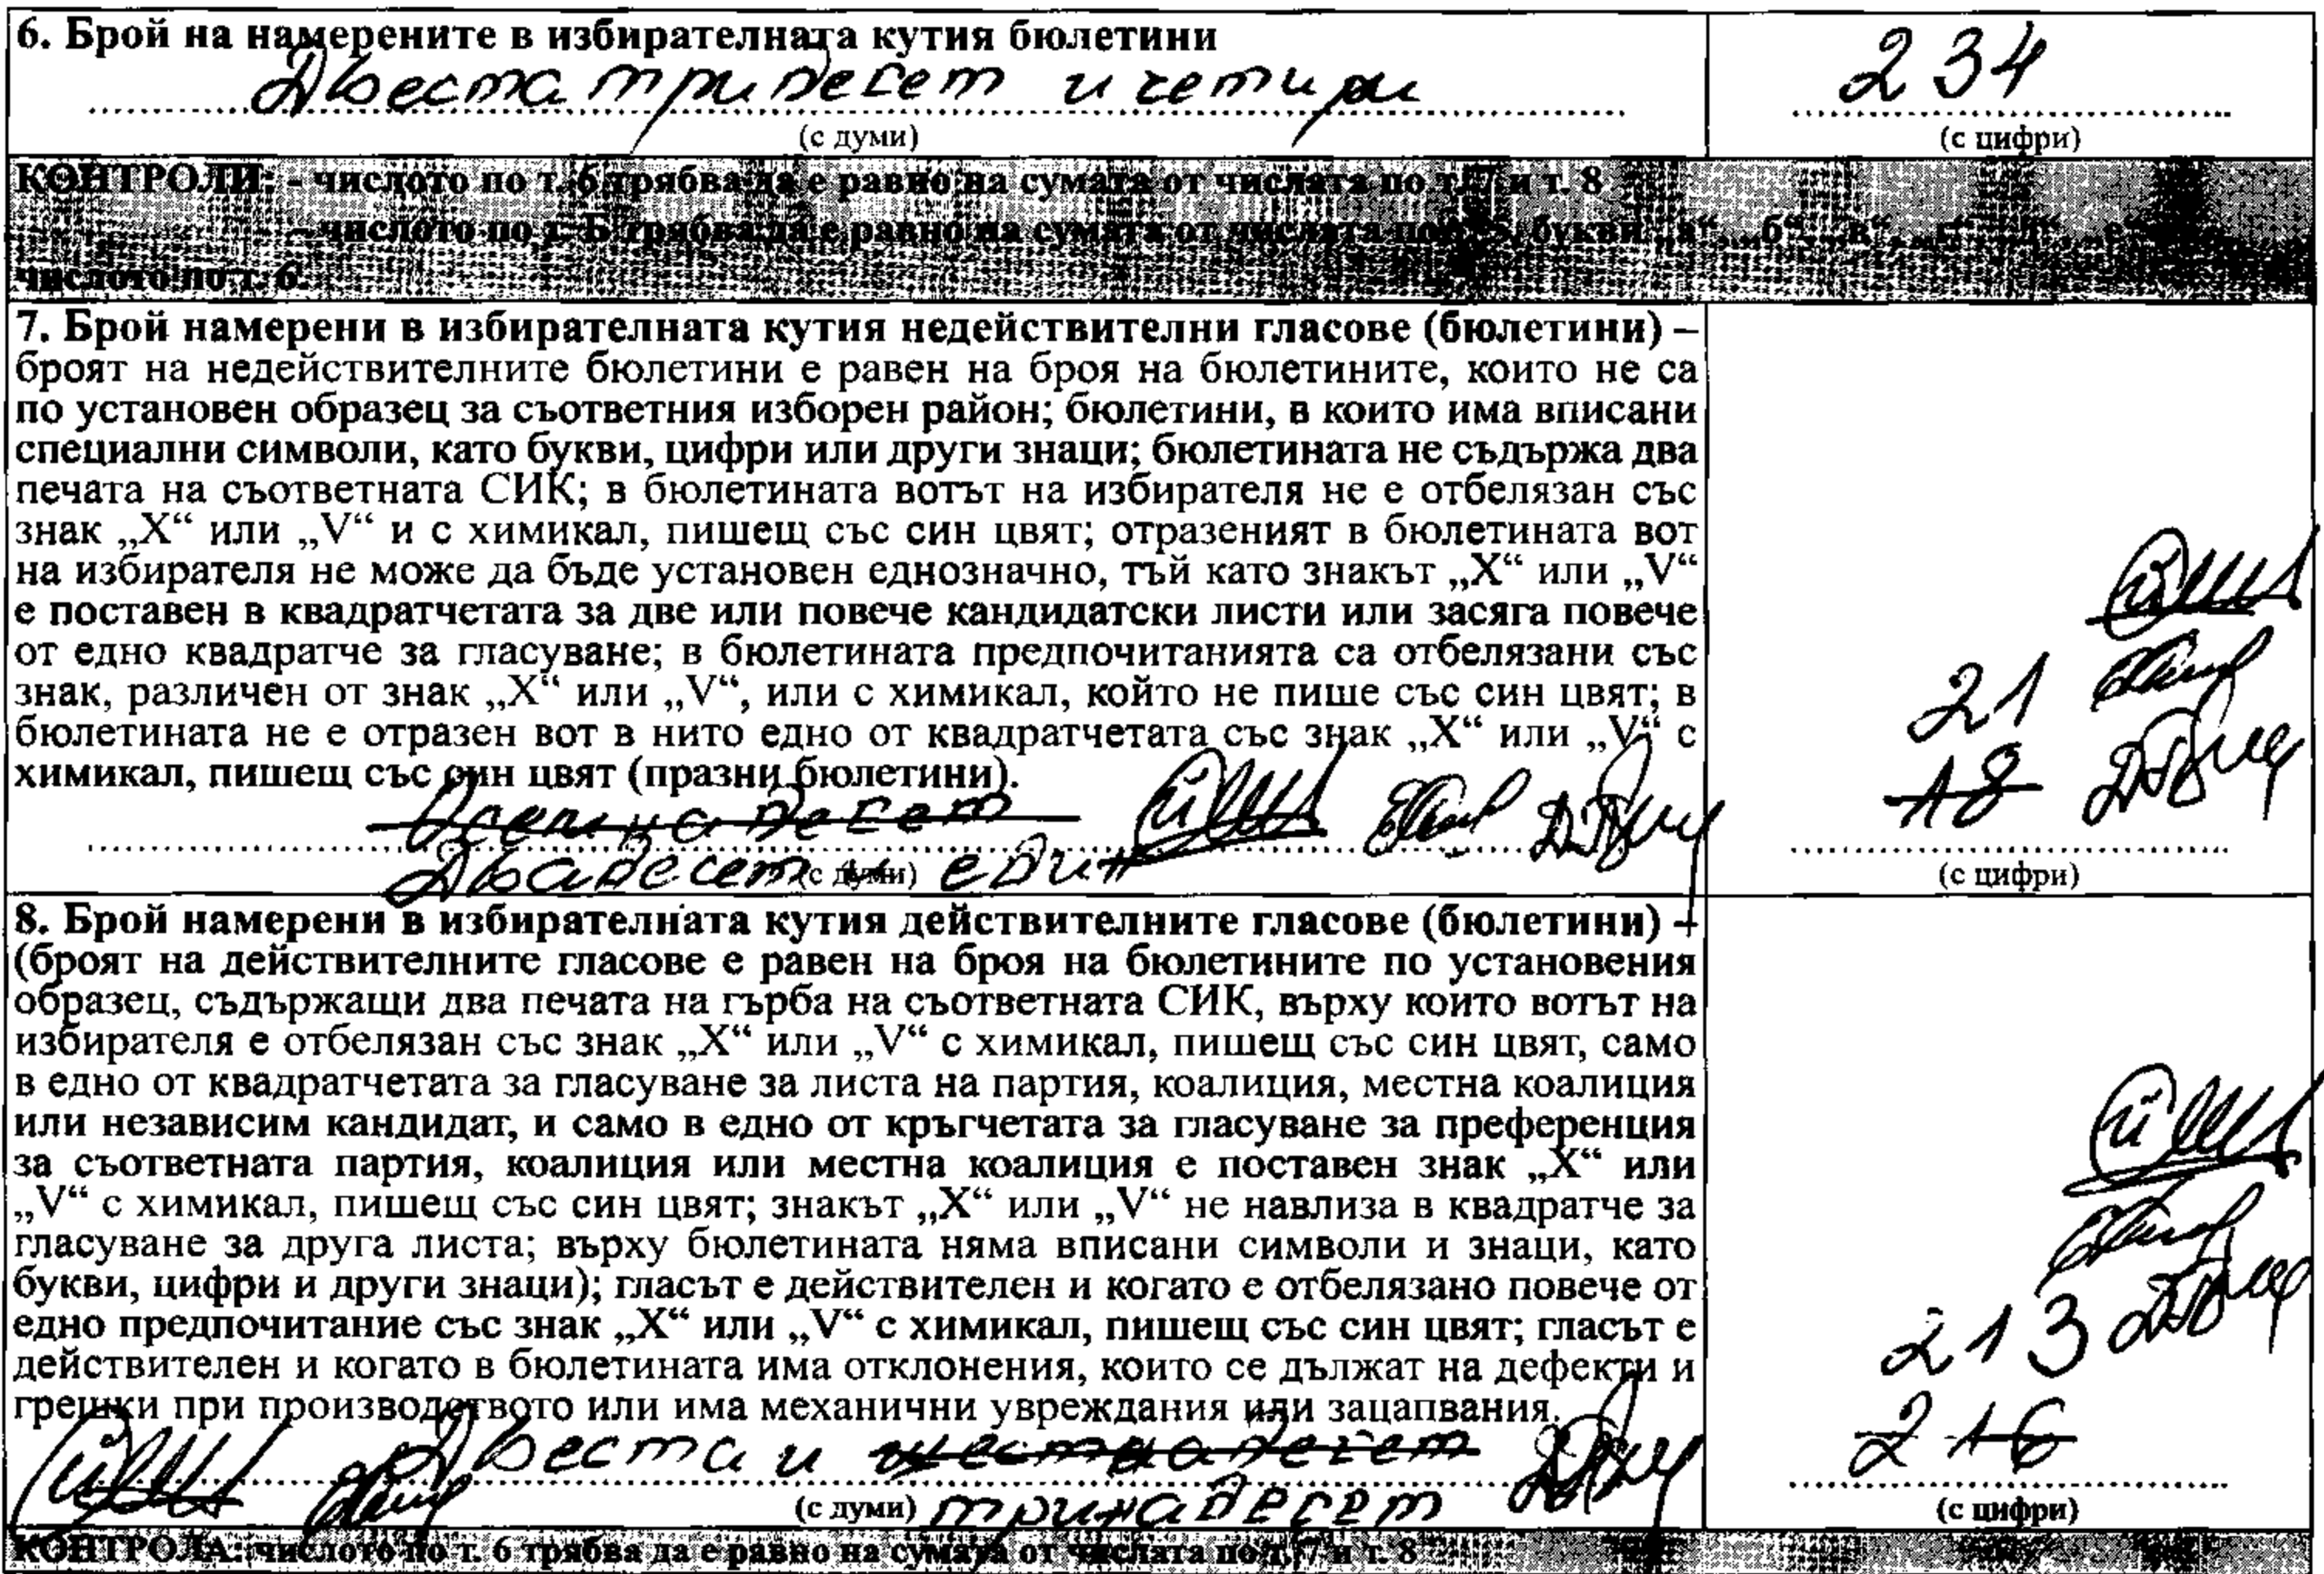 6. Брой на намерените в избирателната кутия бюлетини
Двеста тридесет и четири
234
(с думи)
(с цифри)
КОНТРОЛИ: - числото по т. 6 трябва да е равно на сумата от числата по т. 7 и т. 8
– числото по т. Б трябва да е равно на сумата от числата по т. 5, букви „а“, „б“, „в“, „г“, „д“, „е“
числото по т. 6.
7. Брой намерени в избирателната кутия недействителни гласове (бюлетини) –
броят на недействителните бюлетини е равен на броя на бюлетините, които не са
по установен образец за съответния изборен район; бюлетини, в които има вписани
специални символи, като букви, цифри или други знаци; бюлетината не съдържа два
печата на съответната СИК; в бюлетината вотът на избирателя не е отбелязан със
знак „X“ или „V“ и с химикал, пишещ със син цвят; отразеният в бюлетината вот
на избирателя не може да бъде установен еднозначно, тъй като знакът „X“ или „V“
е поставен в квадратчетата за две или повече кандидатски листи или засяга повече
от едно квадратче за гласуване; в бюлетината предпочитанията са отбелязани със
знак, различен от знак „X“ или „V“, или с химикал, който не пише със син цвят; в
бюлетината не е отразен вот в нито едно от квадратчетата със знак „X“ или „V“ с
химикал, пишещ със син цвят (празни бюлетини).
21
18
Осемнадесет
Двадесет и един
(с думи)
(с цифри)
8. Брой намерени в избирателната кутия действителните гласове (бюлетини) –
(броят на действителните гласове е равен на броя на бюлетините по установения
образец, съдържащи два печата на гърба на съответната СИК, върху които вотът на
избирателя е отбелязан със знак „X“ или „V“ с химикал, пишещ със син цвят, само
в едно от квадратчетата за гласуване за листа на партия, коалиция, местна коалиция
или независим кандидат, и само в едно от кръгчетата за гласуване за преференция
за съответната партия, коалиция или местна коалиция е поставен знак „X“ или
„V“ с химикал, пишещ със син цвят; знакът „X“ или „V“ не навлиза в квадратче за
гласуване за друга листа; върху бюлетината няма вписани символи и знаци, като
букви, цифри и други знаци); гласът е действителен и когато е отбелязано повече от
едно предпочитание със знак „X“ или „V“ с химикал, пишещ със син цвят; гласът е
действителен и когато в бюлетината има отклонения, които се дължат на дефекти и
грешки при производството или има механични увреждания или зацапвания.
213
216
Двеста и шестнадесет
(с думи) тринадесет
(с цифри)
КОНТРОЛА: числото по т. 6 трябва да е равно на сумата от числата по т. 7 и т. 8